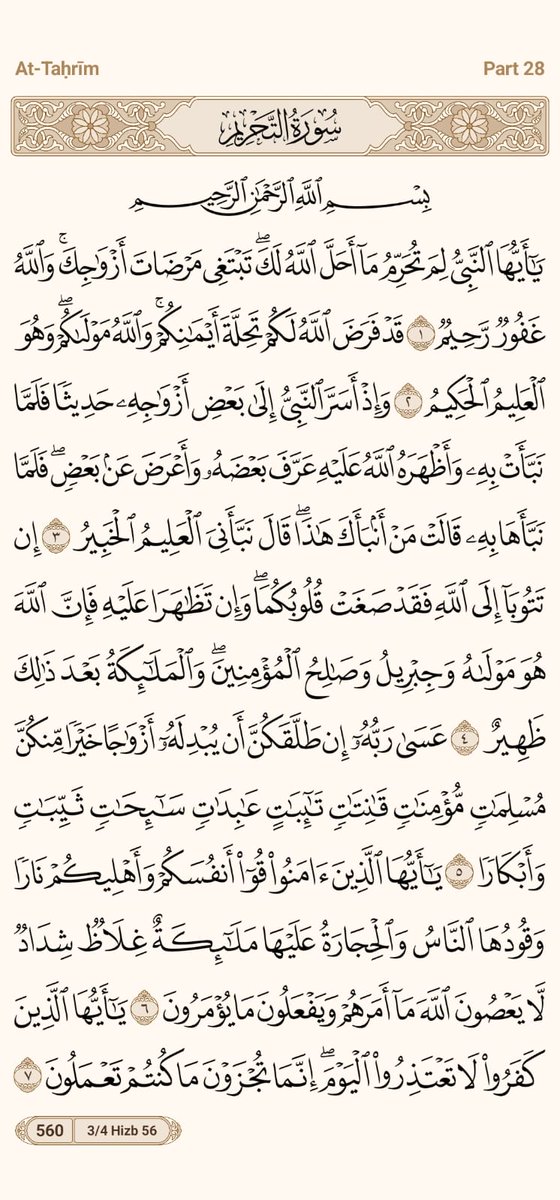 At-Taḥrīm
Part 28
سُورَةُ التَّحۡرِيمِ
بِسۡمِ ٱللَّهِ ٱلرَّحۡمَٰنِ ٱلرَّحِيمِ
يَٰٓأَيُّهَا ٱلنَّبِيُّ لِمَ تُحَرِّمُ مَآ أَحَلَّ ٱللَّهُ لَكَۖ تَبۡتَغِي مَرۡضَاتَ أَزۡوَٰجِكَۚ وَٱللَّهُ
غَفُورٞ رَّحِيمٞ ١ قَدۡ فَرَضَ ٱللَّهُ لَكُمۡ تَحِلَّةَ أَيۡمَٰنِكُمۡۚ وَٱللَّهُ مَوۡلَىٰكُمۡۖ وَهُوَ
ٱلۡعَلِيمُ ٱلۡحَكِيمُ ٢ وَإِذۡ أَسَرَّ ٱلنَّبِيُّ إِلَىٰ بَعۡضِ أَزۡوَٰجِهِۦ حَدِيثٗا فَلَمَّا
نَبَّأَتۡ بِهِۦ وَأَظۡهَرَهُ ٱللَّهُ عَلَيۡهِ عَرَّفَ بَعۡضَهُۥ وَأَعۡرَضَ عَنۢ بَعۡضٖۖ فَلَمَّا
نَبَّأَهَا بِهِۦ قَالَتۡ مَنۡ أَنۢبَأَكَ هَٰذَاۖ قَالَ نَبَّأَنِيَ ٱلۡعَلِيمُ ٱلۡخَبِيرُ ٣ إِن
تَتُوبَآ إِلَى ٱللَّهِ فَقَدۡ صَغَتۡ قُلُوبُكُمَاۖ وَإِن تَظَٰهَرَا عَلَيۡهِ فَإِنَّ ٱللَّهَ
هُوَ مَوۡلَىٰهُ وَجِبۡرِيلُ وَصَٰلِحُ ٱلۡمُؤۡمِنِينَۖ وَٱلۡمَلَٰٓئِكَةُ بَعۡدَ ذَٰلِكَ
ظَهِيرٌ ٤ عَسَىٰ رَبُّهُۥٓ إِن طَلَّقَكُنَّ أَن يُبۡدِلَهُۥٓ أَزۡوَٰجًا خَيۡرٗا مِّنكُنَّ
مُسۡلِمَٰتٖ مُّؤۡمِنَٰتٖ قَٰنِتَٰتٖ تَٰٓئِبَٰتٍ عَٰبِدَٰتٖ سَٰٓئِحَٰتٖ ثَيِّبَٰتٖ
وَأَبۡكَارٗا ٥ يَٰٓأَيُّهَا ٱلَّذِينَ ءَامَنُواْ قُوٓاْ أَنفُسَكُمۡ وَأَهۡلِيكُمۡ نَارٗا
وَقُودُهَا ٱلنَّاسُ وَٱلۡحِجَارَةُ عَلَيۡهَا مَلَٰٓئِكَةٌ غِلَاظٞ شِدَادٞ
لَّا يَعۡصُونَ ٱللَّهَ مَآ أَمَرَهُمۡ وَيَفۡعَلُونَ مَا يُؤۡمَرُونَ ٦ يَٰٓأَيُّهَا ٱلَّذِينَ
كَفَرُواْ لَا تَعۡتَذِرُواْ ٱلۡيَوۡمَۖ إِنَّمَا تُجۡزَوۡنَ مَا كُنتُمۡ تَعۡمَلُونَ ٧
560
3/4 Hizb 56